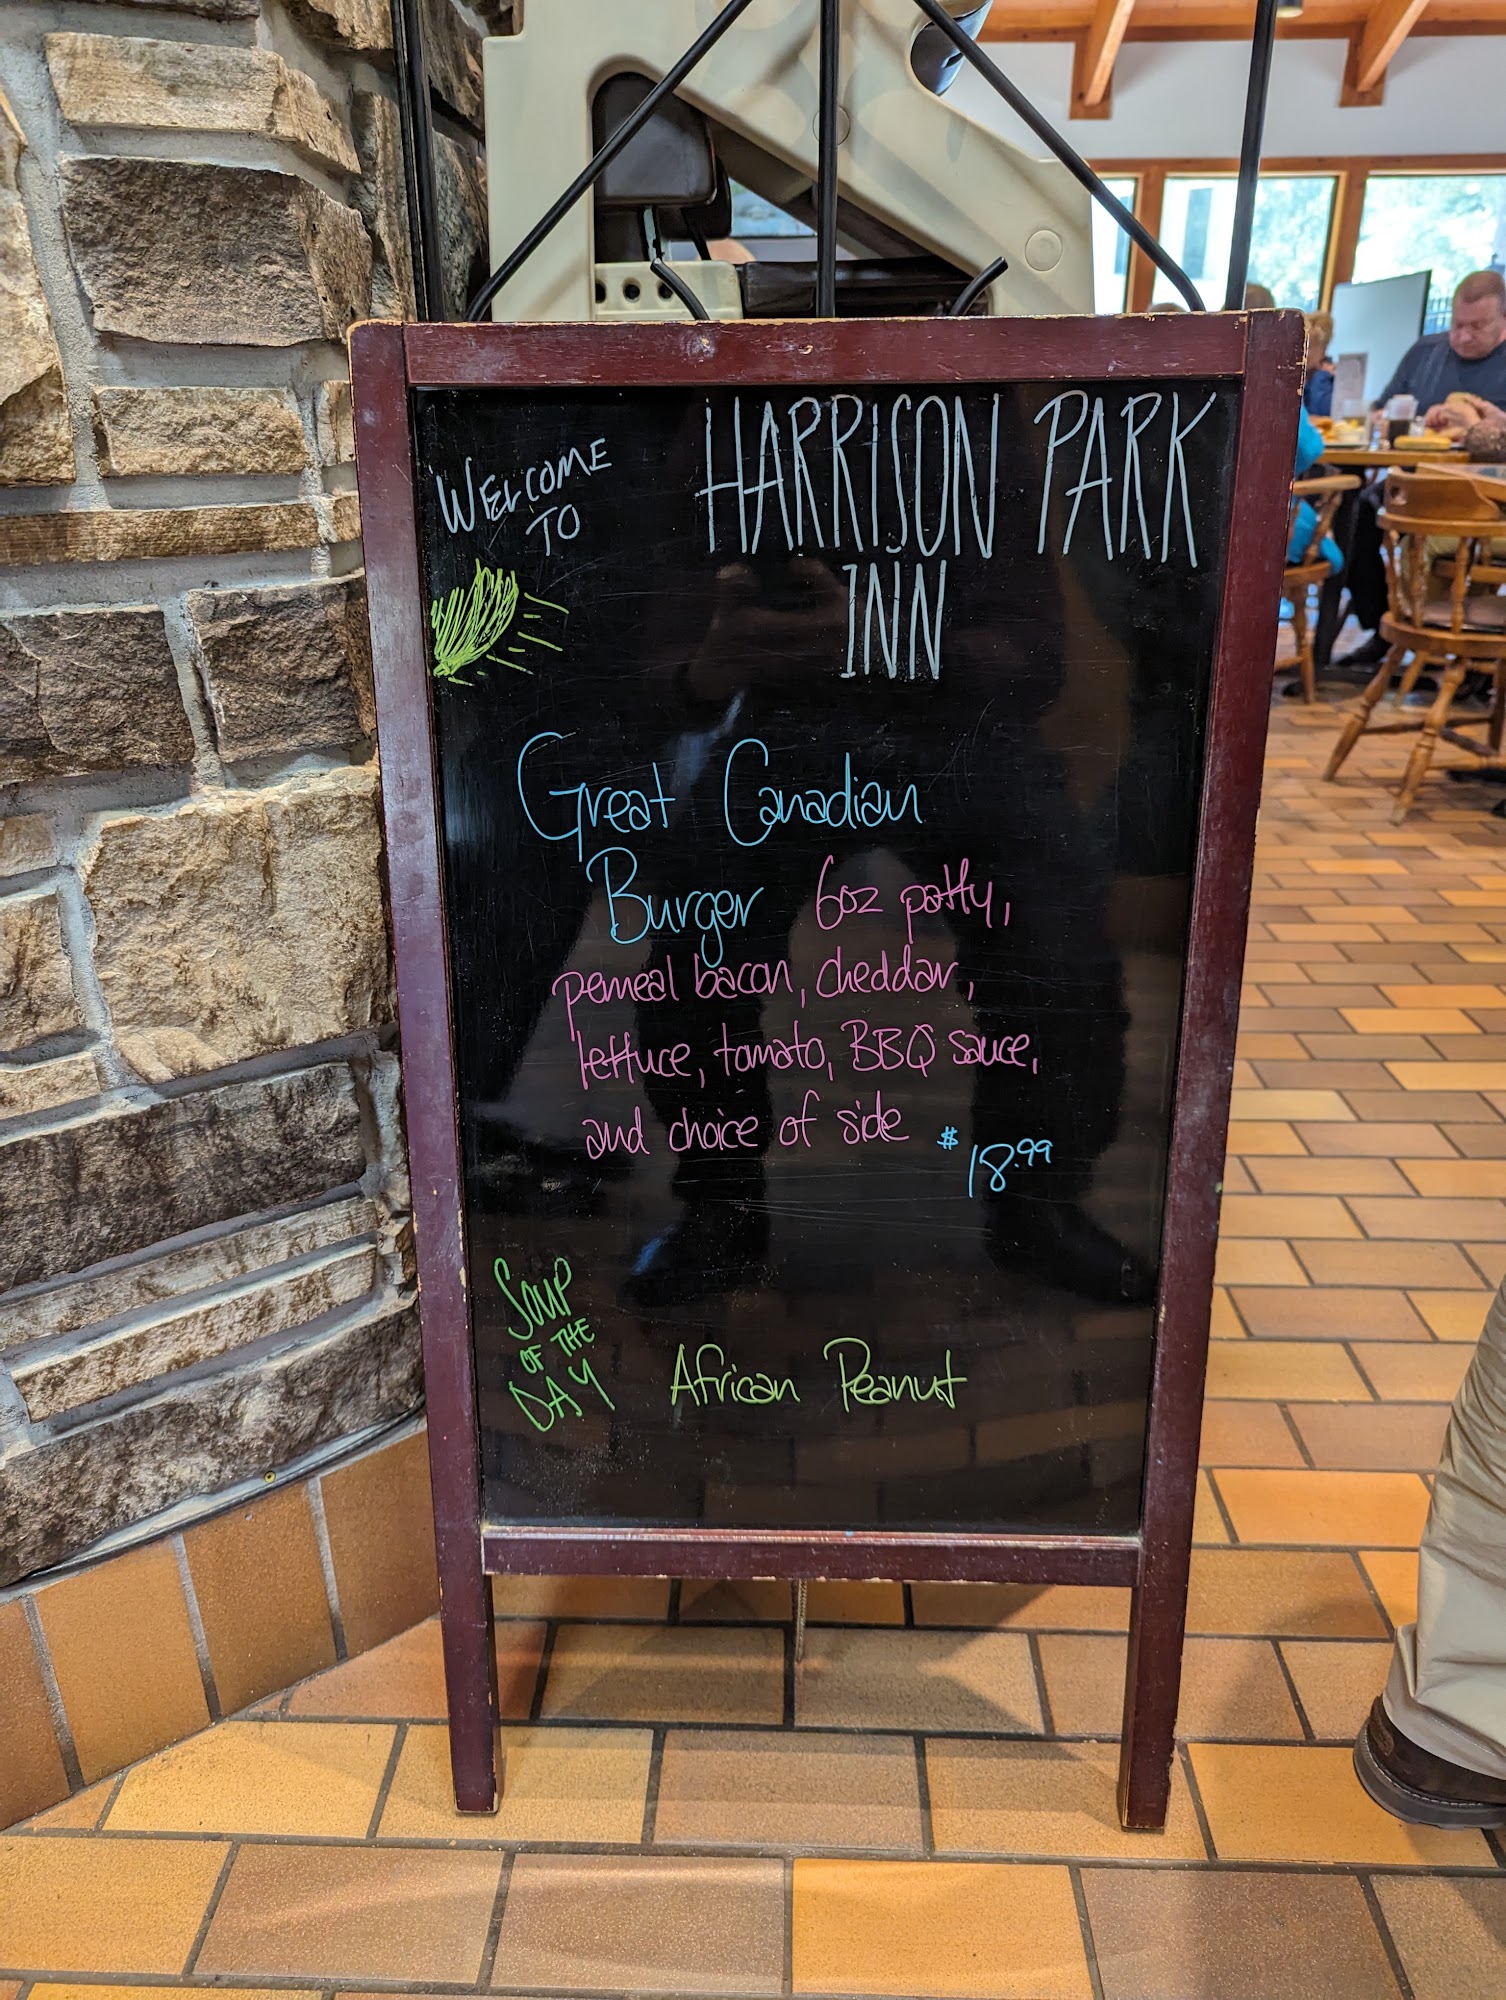 WELCOME
TO
HARRISON PARK
INN
Great Canadian
Burger 6oz patty,
pemeal bacon, cheddar,
lettuce, tomato, BBQ sauce,
and choice of side $18.99
SOUP
OF THE
DAY
African Peanut